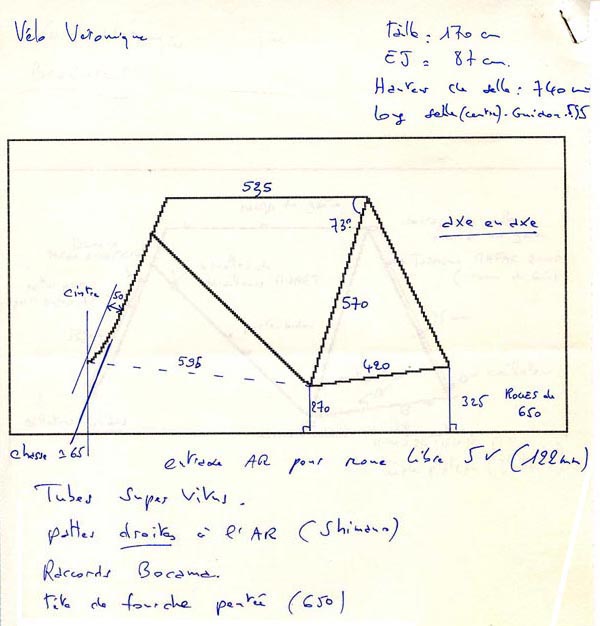 Vélo Véronique
Taille : 170 cm
EJ = 87 cm.
Hauteur de selle : 740 mm
long selle (centre). Guidon. 595
535
73°
axe en axe
cintre
50
570
595
420
270
325
Roues de
650
chasse 165
entraxe AR pour roue libre 5 V (122mm)
Tubes Super Vitus.
pattes droites à l'AR (Shimano)
Raccords Bocama.
tête de fourche pentée (650)